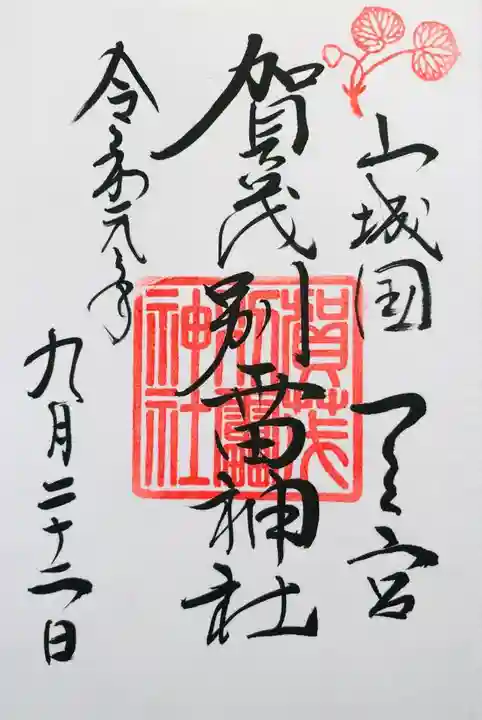 山城国 一之宮
賀茂別雷神社
令和元年
九月二十二日
賀茂
別雷
神社